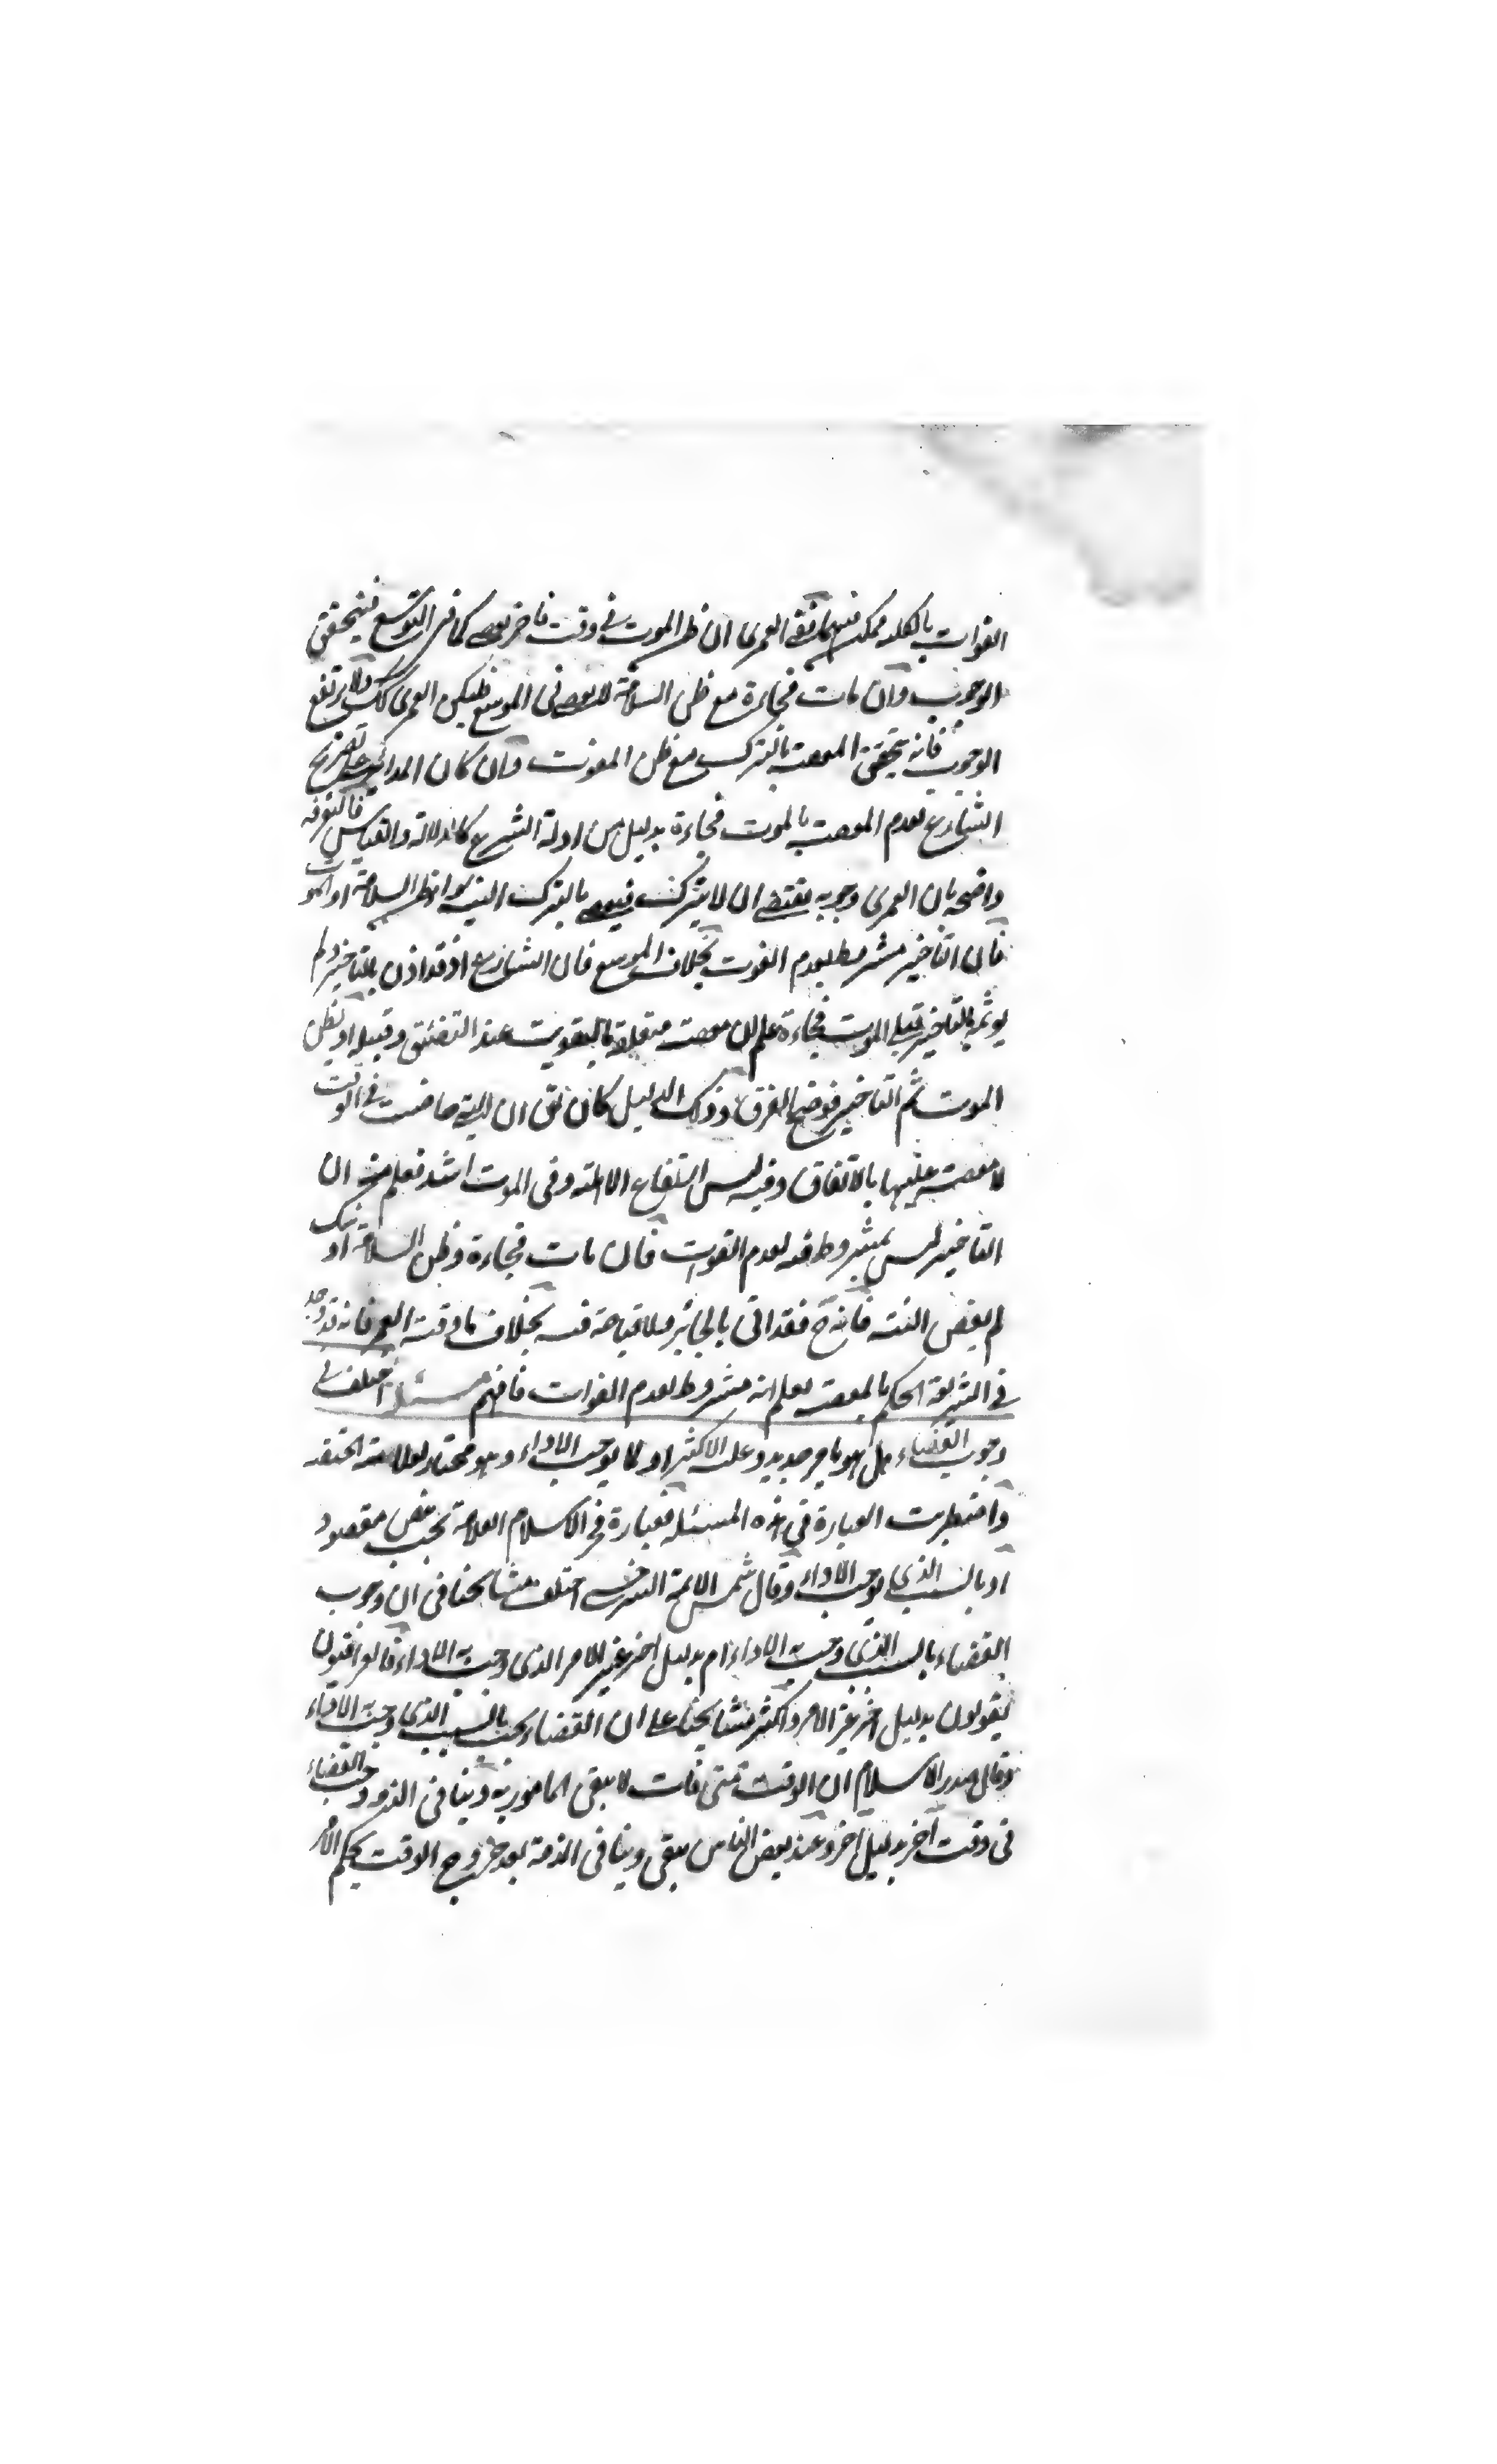 الفوات بالكلية ممكن فيه ففى العمرى ان ظن الموت فى وقت فاخر يعصى كما فى التوسع فيتحقق
الوجوب وان مات فجاءة مع ظن السلامة لا يعصى فى الموسع فليكن العمرى كك ولا يرتفع
الوجوب فانه تحقق المعصية بالترك مع ظن الموت وان كان المدار على تصريح
الشارع بعدم المعصية بالموت فجاءة بدليل من ادلة الشرع كالدلالة والقياس فالتفرقة
واضحة بان العمرى وجوبه يقتضى ان لا يترك فيعصى بالترك البتة سواء ظن السلامة او الموت
فان التاخير مشروط بعدم الفوت بخلاف الموسع فان الشارع اذ قد اذن بالتاخير ولم
يوثمه بالتاخير قبل الموت فجاءة علم ان معصيته متعلقة بالتفويت عند التضيق وقبيله او بظن
الموت ثم التاخير فوضح الفرق وذلك الدليل كان يق ان التى حاضت فى الوقت
لا معصية عليها بالاتفاق وفيه ليس انتفاء الاهلية وفى الموت اشد فعلم منه ان
التاخير ليس بمشروط فيه بعدم الفوات فان مات فجاءة وظن السلامة او شك
لم يعص البتة فانه ح فقد اتى بالجائز فلا قباحة فيه بخلاف ما وقته العمر فانه قد وجد
فى الشريعة الحكم بالمعصية يعلم انه مشروط بعدم الفوات فافهم مسئلة اختلف فى
وجوب القضاء هل هو بامر جديد وعليه الاكثر او بما يوجب الاداء وهو مختار لعامة الحنفية
واضطربت العبارة فى هذه المسئلة فعبارة فخر الاسلام العلامة تجب بنص مقصود
او بالسبب الذى يوجب الاداء وقال شمس الائمة السرخسى اختلف مشائخنا فى ان وجوب
القضاء بالسبب الذى وجب به الاداء ام بدليل اخر غير الامر الذى وجب به الاداء فالعراقيون
يقولون بدليل اخر غير الامر واكثر مشايخنا على ان القضاء يجب بالسبب الذى وجب به الاداء
وقال صدر الاسلام ان الوقت متى فات لا يبقى المامور به دينا فى الذمة ووجب القضاء
فى وقت آخر بدليل آخر وعند بعض الناس يبقى دينا فى الذمة بعد خروج الوقت بحكم الامر